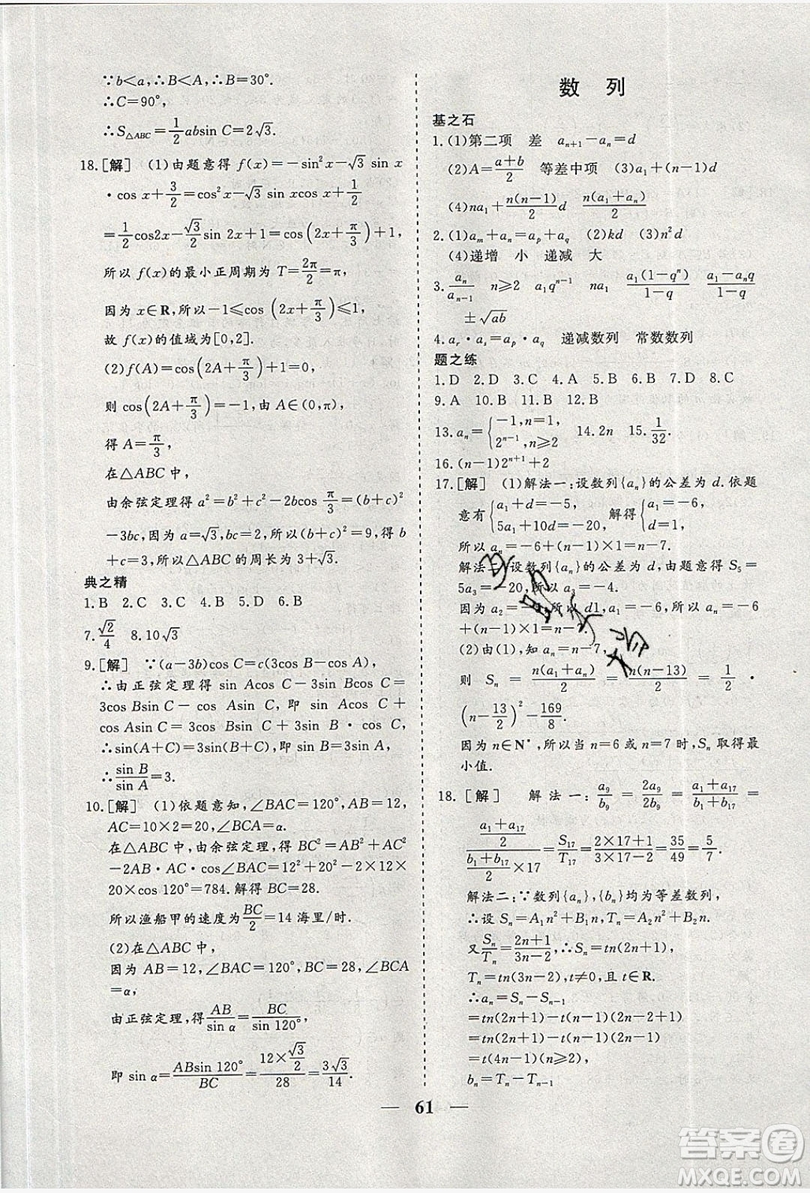 ∵b<a,∴B<A,∴B=30°.
∴C=90°,
∴S△ABC=1/2absin C=2√3.
18.[解] (1)由题意得 f(x)=-sin²x-√3 sin x
·cos x+3/2=cos²x-√3 sin xcos x+1/2
=1/2cos2x-√3/2sin 2x+1=cos(2x+π/3)+1.
所以 f(x)的最小正周期为 T=2π/2=π.
因为 x∈R,所以-1≤cos(2x+π/3)≤1,
故 f(x)的值域为[0,2].
(2)f(A)=cos(2A+π/3)+1=0,
则 cos(2A+π/3)=-1,由 A∈(0,π),
得 A=π/3,
在△ABC 中,
由余弦定理得 a²=b²+c²-bc=(b+c)²
-3bc,因为 a=√3,所以(b+c)²=9,得 b+
c=3,所以△ABC 的周长为 3+√3.
典之精
1.B 2.C 3.C 4.D 5.D 6.B
7.√2/4 8.10√3
9.[解] ∵(a-3b)cos C=c(3cos B-cos A),
∴由正弦定理得 sin Acos C-3sin Bcos C=
3cos Bsin C- cos Asin C,即 sin Acos C+
cos Asin C=3sin Bcos C+3cos B·sin C,
∴sin(A+C)=3sin(B+C),即 sin B=3sin A,
∴sin B/sin A=3.
10.[解] (1)依题意知,∠BAC=120°,AB=12,
AC=10×2=20,∠BCA=α.
在△ABC 中,由余弦定理得 BC²=AB²+AC²
-2AB·AC·cos∠BAC=12²+20²-2×12×
20×cos 120°=784.解得 BC=28.
所以渔船甲的速度为BC/2=14 海里/时.
(2)在△ABC 中,
因为 AB=12,∠BAC=120°,BC=28,∠BCA
=α,
由正弦定理得AB/sin α=BC/sin 120°,
即 sin α=ABsin 120°/BC=(12×√3/2)/28=3√3/14.
数 列
基之石
1.(1)第二项 差 aₙ₊₁-aₙ=d
(2)A=(a+b)/2 等差中项 (3)a₁+(n-1)d
(4)na₁+n(n-1)/2 d n(a₁+aₙ)/2
2.(1)aₘ+aₙ=aₚ+a_q (2)kd (3)n²d
(4)递增 小 递减 大
3.aₙ/aₙ₋₁ n≥2 a₁qⁿ⁻¹ na₁ a₁(1-qⁿ)/(1-q) (a₁-aₙq)/(1-q)
±√ab
4.aᵣ·aₛ=aₚ·a_q 递减数列 常数数列
题之练
1.D 2.D 3.C 4.C 5.B 6.D 7.D 8.C
9.A 10.B 11.B 12.B
13.aₙ={-1,n=1, 2ⁿ⁻¹,n≥2 14.2n 15.1/32.
16.(n-1)2ⁿ⁺¹+2
17.[解] (1)解法一:设数列{aₙ}的公差为 d.依题
意有{a₁+d=-5, 5a₁+10d=-20,解得{a₁=-6, d=1.
所以 aₙ=-6+(n-1)×1=n-7.
解法二:设数列{aₙ}的公差为 d,依题意得 S₅=
5a₃=-20,所以 a₃=-4.
因为 a₂=-5,所以 d1,a₁=-6,所以 aₙ=-6
+(n-1)×1=n-7.
(2)由(1),知 aₙ=n-7,a₁=-6,
则 Sₙ = n(a₁+aₙ)/2 = n(n-13)/2 = 1/2 ·
(n-13/2)²-169/8.
因为 n∈N*,所以当 n=6 或 n=7 时,Sₙ 取得最
小值.
18.[解] 解法一:a₉/b₉=2a₉/2b₉=(a₁+a₁₇)/(b₁+b₁₇)=
((a₁+a₁₇)/2×17)/((b₁+b₁₇)/2×17)=S₁₇/T₁₇=(2×17+1)/(3×17-2)=35/49=5/7.
解法二:∵数列{aₙ},{bₙ}均为等差数列,
∴设 Sₙ=A₁n²+B₁n,Tₙ=A₂n²+B₂n.
又Sₙ/Tₙ=(2n+1)/(3n-2),∴Sₙ=tn(2n+1),
Tₙ=tn(3n-2),t≠0,且 t∈R.
∴aₙ=Sₙ-Sₙ₋₁
=tn(2n+1)-t(n-1)(2n-2+1)
=tn(2n+1)-t(n-1)(2n-1)
=t(4n-1)(n≥2),
bₙ=Tₙ-Tₙ₋₁
61
答案圈
MXQE.COM